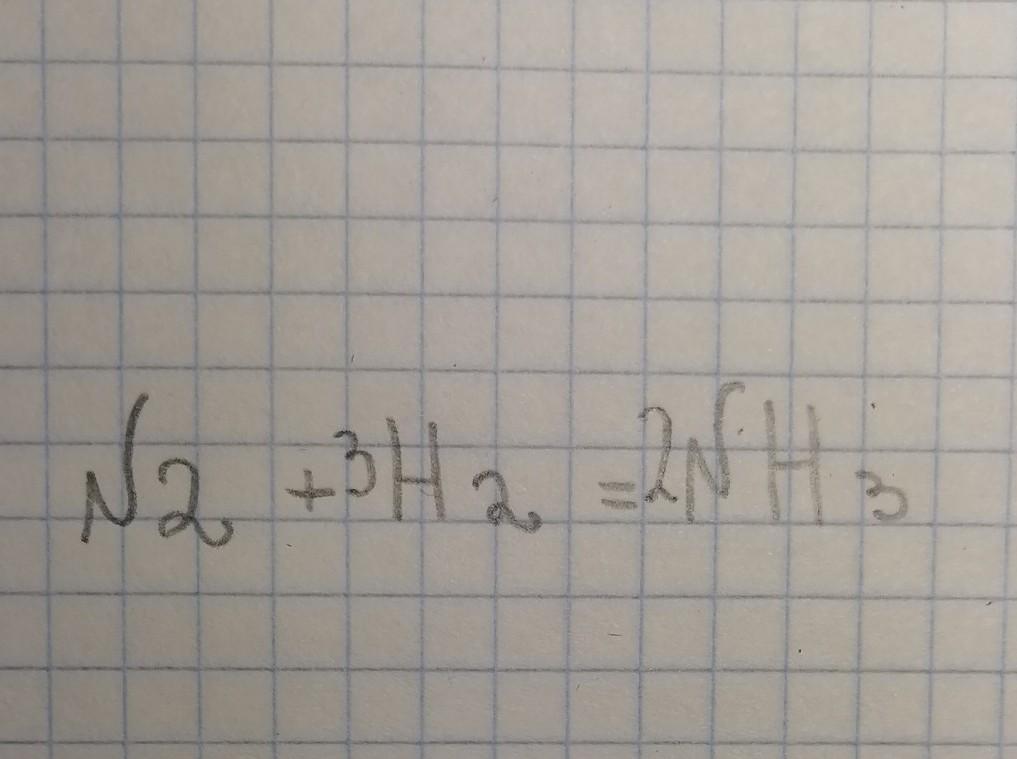 N2 +3H2 =2NH3